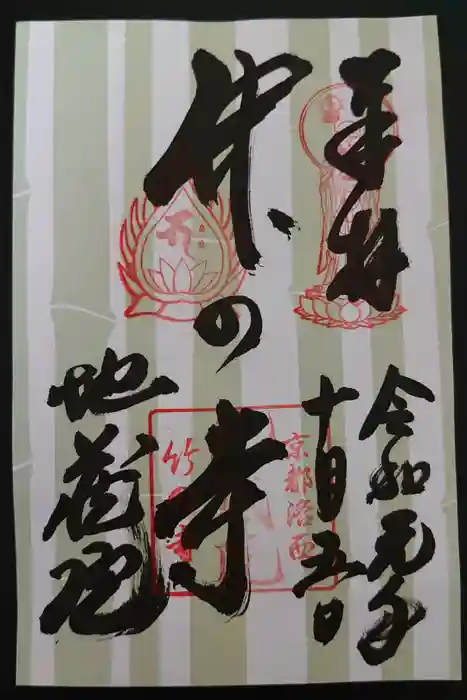 奉拝
令和元年
十月五日
竹の寺
地蔵院
京都洛西
竹の寺